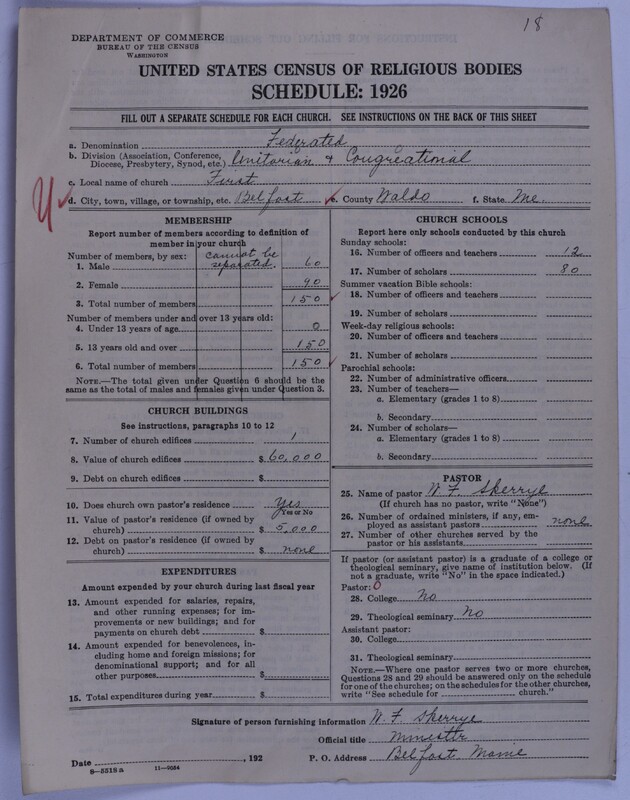 18
DEPARTMENT OF COMMERCE
BUREAU OF THE CENSUS
WASHINGTON
UNITED STATES CENSUS OF RELIGIOUS BODIES
SCHEDULE: 1926
FILL OUT A SEPARATE SCHEDULE FOR EACH CHURCH. SEE INSTRUCTIONS ON THE BACK OF THIS SHEET
a. Denomination Federated
b. Division (Association, Conference, Diocese, Presbytery, Synod, etc.) Unitarian & Congreational
c. Local name of church First
d. City, town, village, or township, etc. Belfast e. County Waldo f. State Me.
MEMBERSHIP
Report number of members according to definition of
member in your church
Number of members, by sex: cannot be
1. Male separated. 60
2. Female 90
3. Total number of members 150
Number of members under and over 13 years old:
4. Under 13 years of age 0
5. 13 years old and over 150
6. Total number of members 150
NOTE.—The total given under Question 6 should be the
same as the total of males and females given under Question 3.
CHURCH BUILDINGS
See instructions, paragraphs 10 to 12
7. Number of church edifices 1
8. Value of church edifices $ 60,000
9. Debt on church edifices $
10. Does church own pastor's residence Yes
Yes or No
11. Value of pastor's residence (if owned by
church) $ 5,000
12. Debt on pastor's residence (if owned by
church) $ none
EXPENDITURES
Amount expended by your church during last fiscal year
13. Amount expended for salaries, repairs,
and other running expenses; for im-
provements or new buildings; and for
payments on church debt $
14. Amount expended for benevolences, in-
cluding home and foreign missions; for
denominational support; and for all
other purposes $
15. Total expenditures during year $
CHURCH SCHOOLS
Report here only schools conducted by this church
Sunday schools:
16. Number of officers and teachers 12
17. Number of scholars 80
Summer vacation Bible schools:
18. Number of officers and teachers
19. Number of scholars
Week-day religious schools:
20. Number of officers and teachers
21. Number of scholars
Parochial schools:
22. Number of administrative officers
23. Number of teachers—
a. Elementary (grades 1 to 8)
b. Secondary
24. Number of scholars—
a. Elementary (grades 1 to 8)
b. Secondary
PASTOR
25. Name of pastor W. F. Skerrye
(If church has no pastor, write "None")
26. Number of ordained ministers, if any, em-
ployed as assistant pastors none
27. Number of other churches served by the
pastor or his assistants
If pastor (or assistant pastor) is a graduate of a college or
theological seminary, give name of institution below. (If
not a graduate, write "No" in the space indicated.)
Pastor: 0
28. College No
29. Theological seminary No
Assistant pastor:
30. College
31. Theological seminary
NOTE.—Where one pastor serves two or more churches,
Questions 28 and 29 should be answered only on the schedule
for one of the churches; on the schedules for the other churches,
write "See schedule for church."
Signature of person furnishing information W. F. Skerrye
Official title Minister
Date , 192 P. O. Address Belfast Maine
8—5518 a 11—9534